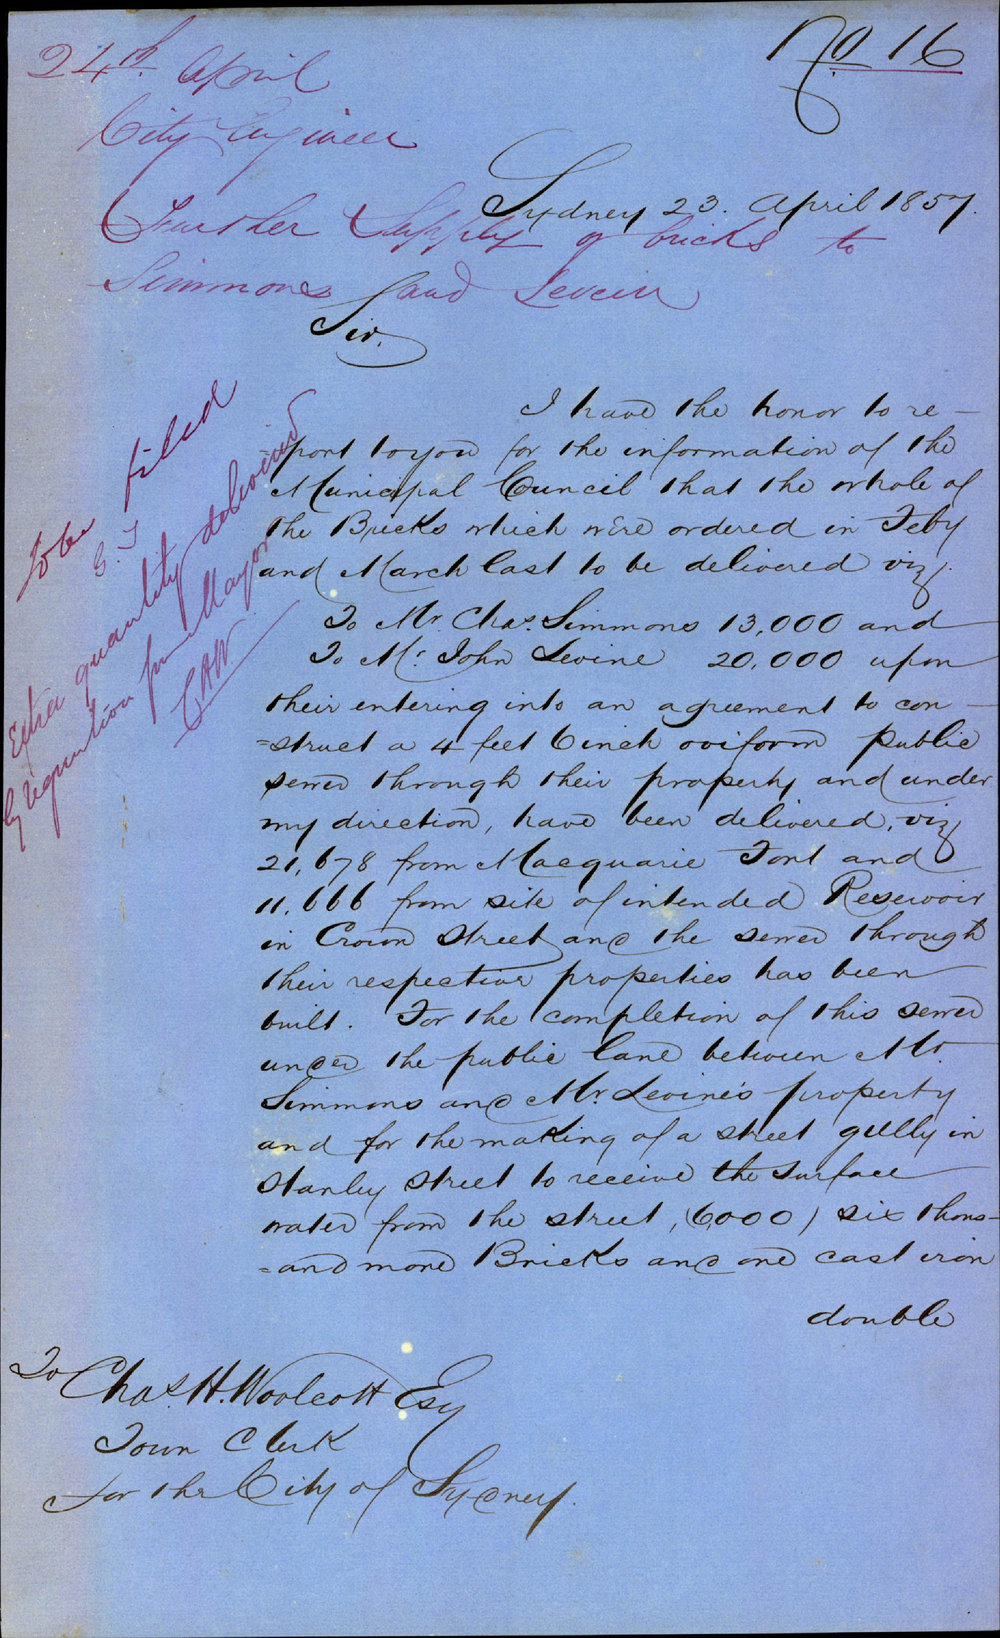 No 16
24th April
City Engineer
Sydney 23. April 1857.
Further Supply of bricks to
Simmons and Levein
Sir,
I have the honor to re-
=port to you for the information of the
Municipal Council that the whole of
the Bricks which were ordered in Feby
and March last to be delivered viz.
To Mr. Chas. Simmons 13,000 and
To Mr. John Levine 20,000 upon
their entering into an agreement to con-
=struct a 4 feet 6 inch oviform public
sewer through their property and under
my direction, have been delivered, viz
21,678 from Macquarie Font and
11,666 from site of intended Reservoir
in Crown Street and the sewer through
their respective properties has been
built. For the completion of this sewer
under the public lane between Mr.
Simmons and Mr. Levine's property
and for the making of a street gully in
Stanley Street to receive the surface
water from the street, (6,000) six thous-
=and more Bricks and one cast iron
double
To be filed
Extra quantity delivered
by requisition from Mayor
CHW
To Chas. H. Woolcott Esq
Town Clerk
for the City of Sydney.